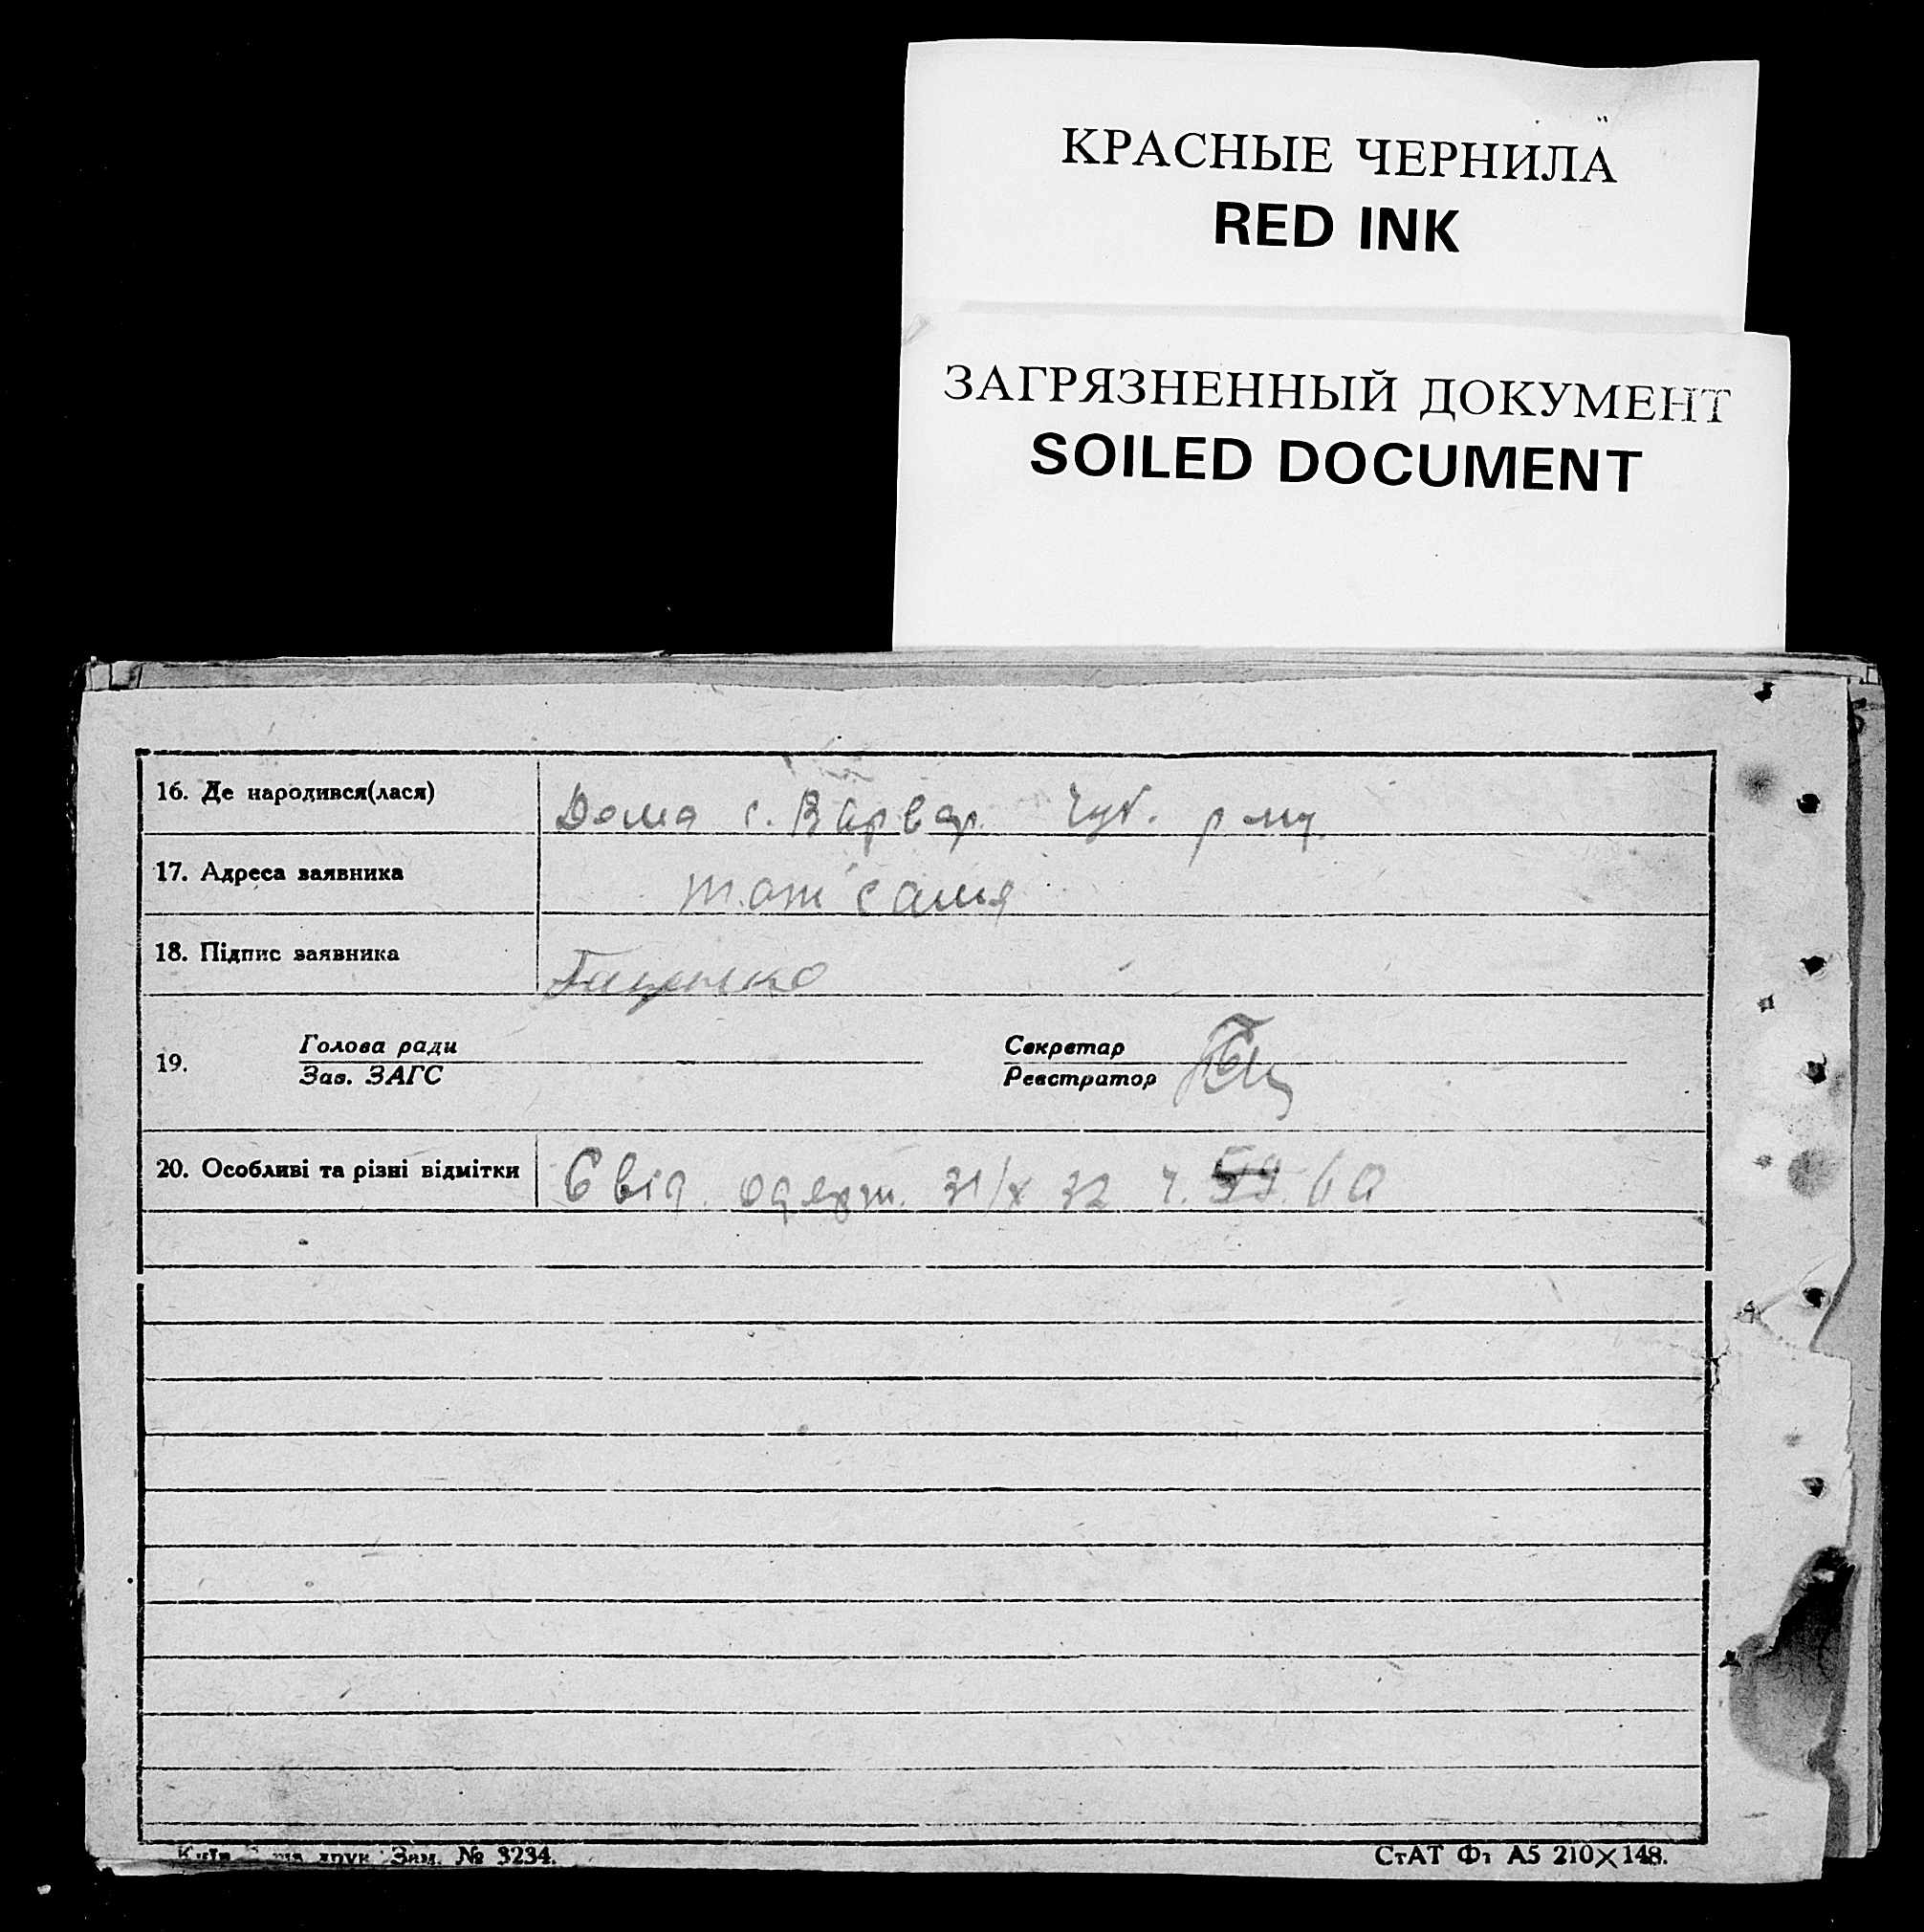 КРАСНЫЕ ЧЕРНИЛА
RED INK
ЗАГРЯЗНЕННЫЙ ДОКУМЕНТ
SOILED DOCUMENT
16. Де народився(лася) Дома с. Варвар.
17. Адреса заявника таж сама
18. Підпис заявника
19. Голова ради Секретар
Зав. ЗАГС Реєстратор
20. Особливі та різні відмітки Свід. одерж. 31/X 32 ч. 59. 60
друк. Зам. № 3234.
СтАТ Ф А5 210×148.